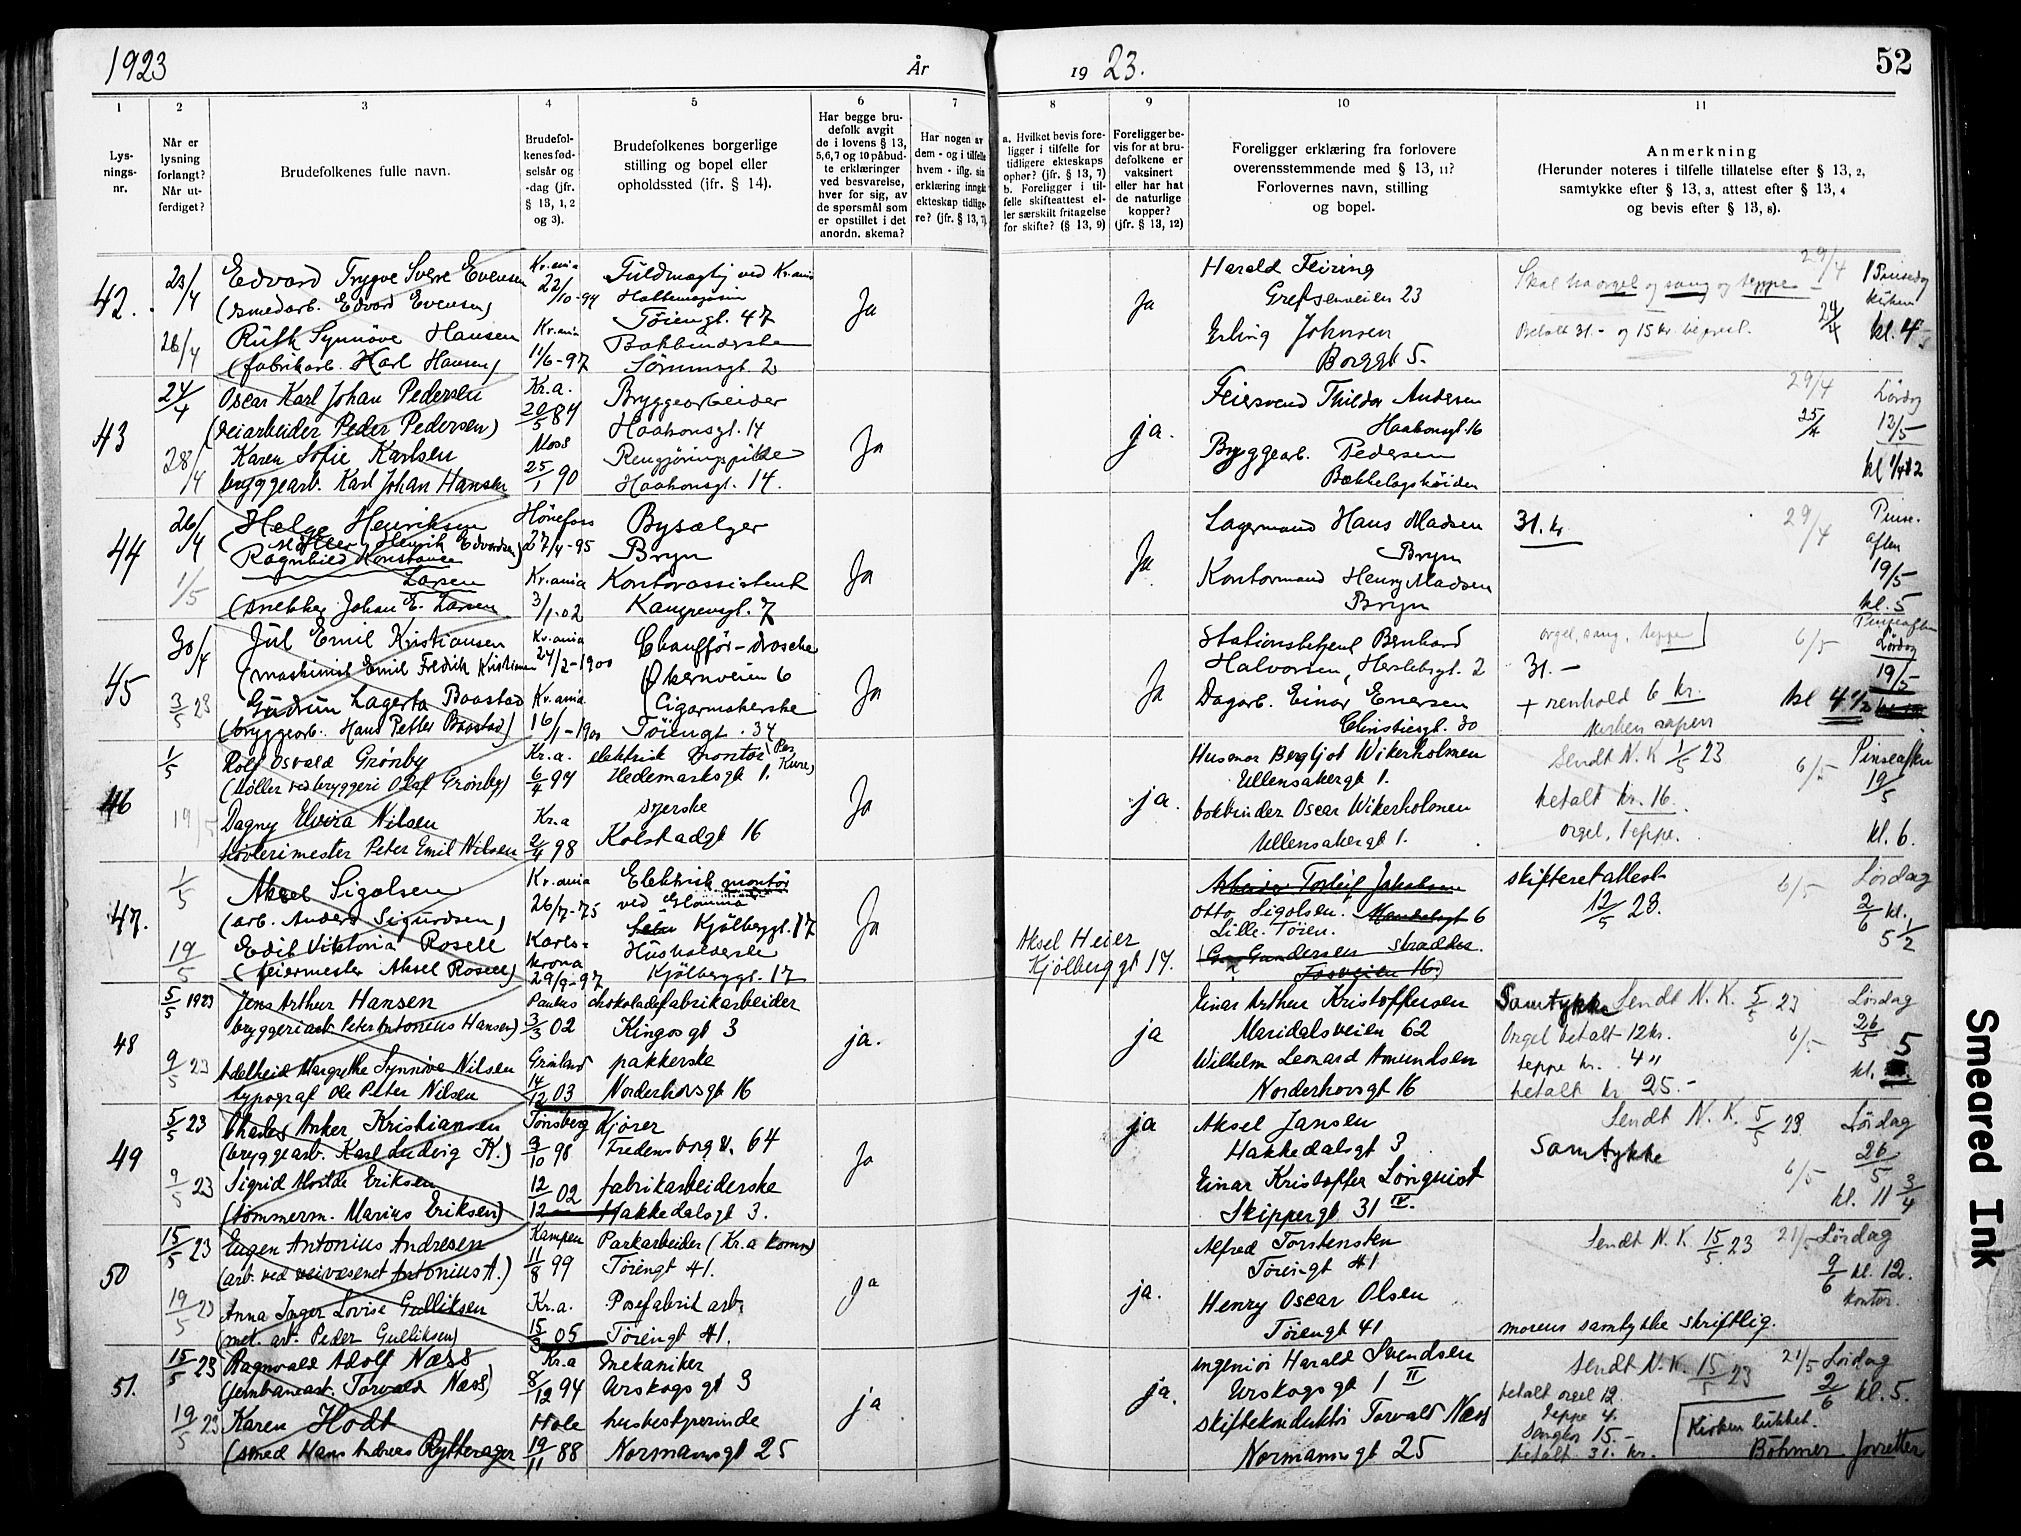 1923
År
19 23.
52
1
2
3
4
5
6
7
8
9
10
11
Lys-
nings-
nr.
Når er
lysning
forlangt?
Når ut-
ferdiget?
Brudefolkenes fulle navn.
Brudefol-
kenes fød-
selsår og
-dag (jfr.
§ 13, 1, 2
og 3).
Brudefolkenes borgerlige
stilling og bopel eller
opholdssted (ifr. § 14).
Har begge bru-
defolk avgit
de i lovens § 13,
5,6,7 og 10 påbud-
te erklæringer
ved besvarelse,
hver for sig, av
de spørsmål som
er opstillet i det
anordn. skema?
Har nogen av
dem - og i tilfelle
hvem - iflg. sin
erklæring inngått
ekteskap tidlige-
re? (jfr. § 13, 7)
a. Hvilket bevis fore-
ligger i tilfelle for
tidligere ekteskaps
ophør? (jfr. § 13, 7)
b. Foreligger i til-
felle skifteattest el-
ler særskilt fritagelse
for skifte? (§ 13, 9)
Foreligger be-
vis for at bru-
defolkene er
vaksinert
eller har hat
de naturlige
kopper?
(jfr. § 13, 12)
Foreligger erklæring fra forlovere
overensstemmende med § 13, 11?
Forlovernes navn, stilling
og bopel.
Anmerkning
(Herunder noteres i tilfelle tillatelse efter § 13, 2,
samtykke efter § 13, 3, attest efter § 13, 4
og bevis efter § 13, 8).
42.
23/4
Edvard Trygve Sverre Evensen
(smedarb. Edvard Evensen)
26/4
Ruth Synnöve Hansen
(fabrikarb. Karl Hansen)
Kr.ania
22/10-94
Kr.ania
11/6-97
Fuldmægtig ved Kr.ania
Töiengt. 47
Bokbinderske
Sörumsgt. 2
Ja
Ja
Harald Feiring
Grefsenveien 23
Erling Johnsen
Borggt 5.
Skal ha orgel og sang og teppe
Betalt 31.- og 15 kr.
29/4
24/4
kl. 4
43
24/4
Oscar Karl Johan Pedersen
(veiarbeider Peder Pedersen)
28/4
Karen Sofie Karlsen
bryggearb. Karl Johan Hansen
Kr.a.
20/5 84
Moss
25/1 90
Bryggearbeider
Haakonsgt. 14
Rengjöringspike
Haakonsgt. 14.
Ja
ja.
Feiersvend Thildor Andersen
Haakonsgt. 16
Bryggearb. Pedersen
Bækkelagshöiden
29/4
25/4
Lördag
13/5
44
26/4
Helge Henriksen
(Möller Henrik Edvardsen)
1/5
Ragnhild Konstance
Larsen
(snekker Johan E. Larsen
Hönefoss
27/4-95
Kr.ania
3/1.02
Bysælger
Bryn
Kontorassistent
Kampensgt. 7
Ja
Ja
Lagermand Hans Madsen
Bryn
Kontormand Henry Madsen
Bryn
31. kr
29/4
Pinse-
aften
19/5
kl. 5
45
30/4
Jul Emil Kristiansen
(maskinist Emil Fredrik Kristiansen
3/5 23
Gudrun Lagerta Baastad
(bryggearb. Hans Petter Baastad)
Kr.ania
24/2-1900
Kr.ania
16/1-1900
Chaufför-drosche
Økernveien 6
Cigarmakerske
Töiengt. 34
Ja
Ja
Stationsbetjent Bernhard
Halvorsen, Herslebsgt. 2
Dagarb. Einar Enersen
Christiesgt. 30
orgel, sang, teppe
31.-
+ renhold 6 kr.
kirken aapen
6/5
Pinseaften
Lördag
19/5
kl 4 1/2
46
1/5
Rolf Osvald Grönby
(Møller ved bryggeri Olaf Grönby)
Dagny Elvira Nilsen
høvlerimester Peter Emil Nilsen
Kr. a.
6/4 94
Kr.a
2/4 98
elektrisk montör
Hedemarksgt 1.
syerske
Kolstadgt 16
Ja
ja.
Husmor Bergljot Wikerholmen
Ullensakergt 1.
bokbinder Oscar Wikerholmen
Ullensakergt 1.
Sendt N. K 1/5 23
betalt kr. 16.
orgel, Teppe.
6/5
Pinseaften
19/5
kl. 6.
47.
1/5
Aksel Sigolsen
(arb. Anders Sigurdsen)
19/5
Edit Viktoria Rosell
(feiermester Aksel Rosell)
Kr.ania
26/7-75
Karls-
krona
29/9-97
Elektrisk montör
ved Glommen
Kjölberggt. 17
Husholderske
Kjölberggt. 17
Ja
Aksel Heier
Kjölberggt 17.
Arbeider Torleif Jakobsen
Otto Sigolsen. 6
Lille Töien.
Gundersen
Fossveien 16)
skifteretattest
12/5 23.
6/5
Lördag
2/6 kl.
5 1/2
48
5/5 1923
Jens Arthur Hansen
bryggeriarb. Peter Antonius Hansen)
9/5 23
Adelheid Margrethe Synnöve Nilsen
typograf Ole Peter Nilsen
Paulus
3/3 02
Grönland
14/12 03
chokoladefabrikarbeider
Kingos gt 3
pakkerske
Norderhovsgt 16
ja.
ja
Einar Arthur Kristoffersen
Maridalsveien 62
Wilhelm Leonard Amundsen
Norderhovsgt 16
Samtykke Sendt N. K. 5/5 23
Orgel betalt 12 kr.
teppe kr. 4 "
betalt kr 25.-
6/5
Lördag
26/5
kl. 5
49
5/5 23
Charles Anker Kristiansen
(bryggearb. Karl Ludvig K.)
9/5 23
Sigrid Alvilde Eriksen
(tömmerm. Marius Eriksen)
Tønsberg
9/10 98
12/12 02
Kjører
Fredensborg v. 64
fabrikarbeiderske
Hakkedalsgt 3.
Ja
ja
Aksel Jansen
Hakkedalsgt 3
Einar Kristoffer Lönquist
Skippergt 31 IV.
Sendt N. K. 5/5 23
Samtykke
6/5
Lördag
26/5
kl. 11 3/4
50
15/5 23
Eugen Antonius Andresen
(arb. ved veivæsenet Antonius A.)
19/5 23
Anna Inger Lovise Gulliksen
(met. arb. Peder Gulliksen)
Kampen
11/8 99
Kr.a.
15/3 05
Parkarbeider (Kr.a komm)
Töiengt 41.
Posefabrik arb.
Töiengt 41.
ja
ja.
Alfred Torstensen
Töiengt 41
Henry Oscar Olsen
Töiengt 41
Sendt N. K. 15/5 23
21/5
Lördag
9/6 kl. 12.
kontor.
morens samtykke skriftlig.
51.
15/5 23
Ragnvald Adolf Næss
(jernbanearb. Torvald Næss)
19/5 23
Karen Hodt
(smed Hans Andreas Rytterager
Kr.a
8/12 94
Hole
19/11 88
mekaniker
Urskogs gt 3
husbestyrerinde
Normannsgt 25
ja
ja.
ingeniör Harald Svendsen
Urskogs gt 1 II
skiftekonduktör Torvald Næss
Normannsgt 25
Sendt N. K. 15/5 23
betalt orgel 12.
Teppe 4.
Sangkor 15.-
betalt 31. kr.
21/5
Lördag
2/6 kl. 5.
Kirken lukket.
Böhmer forretter
Smeared Ink